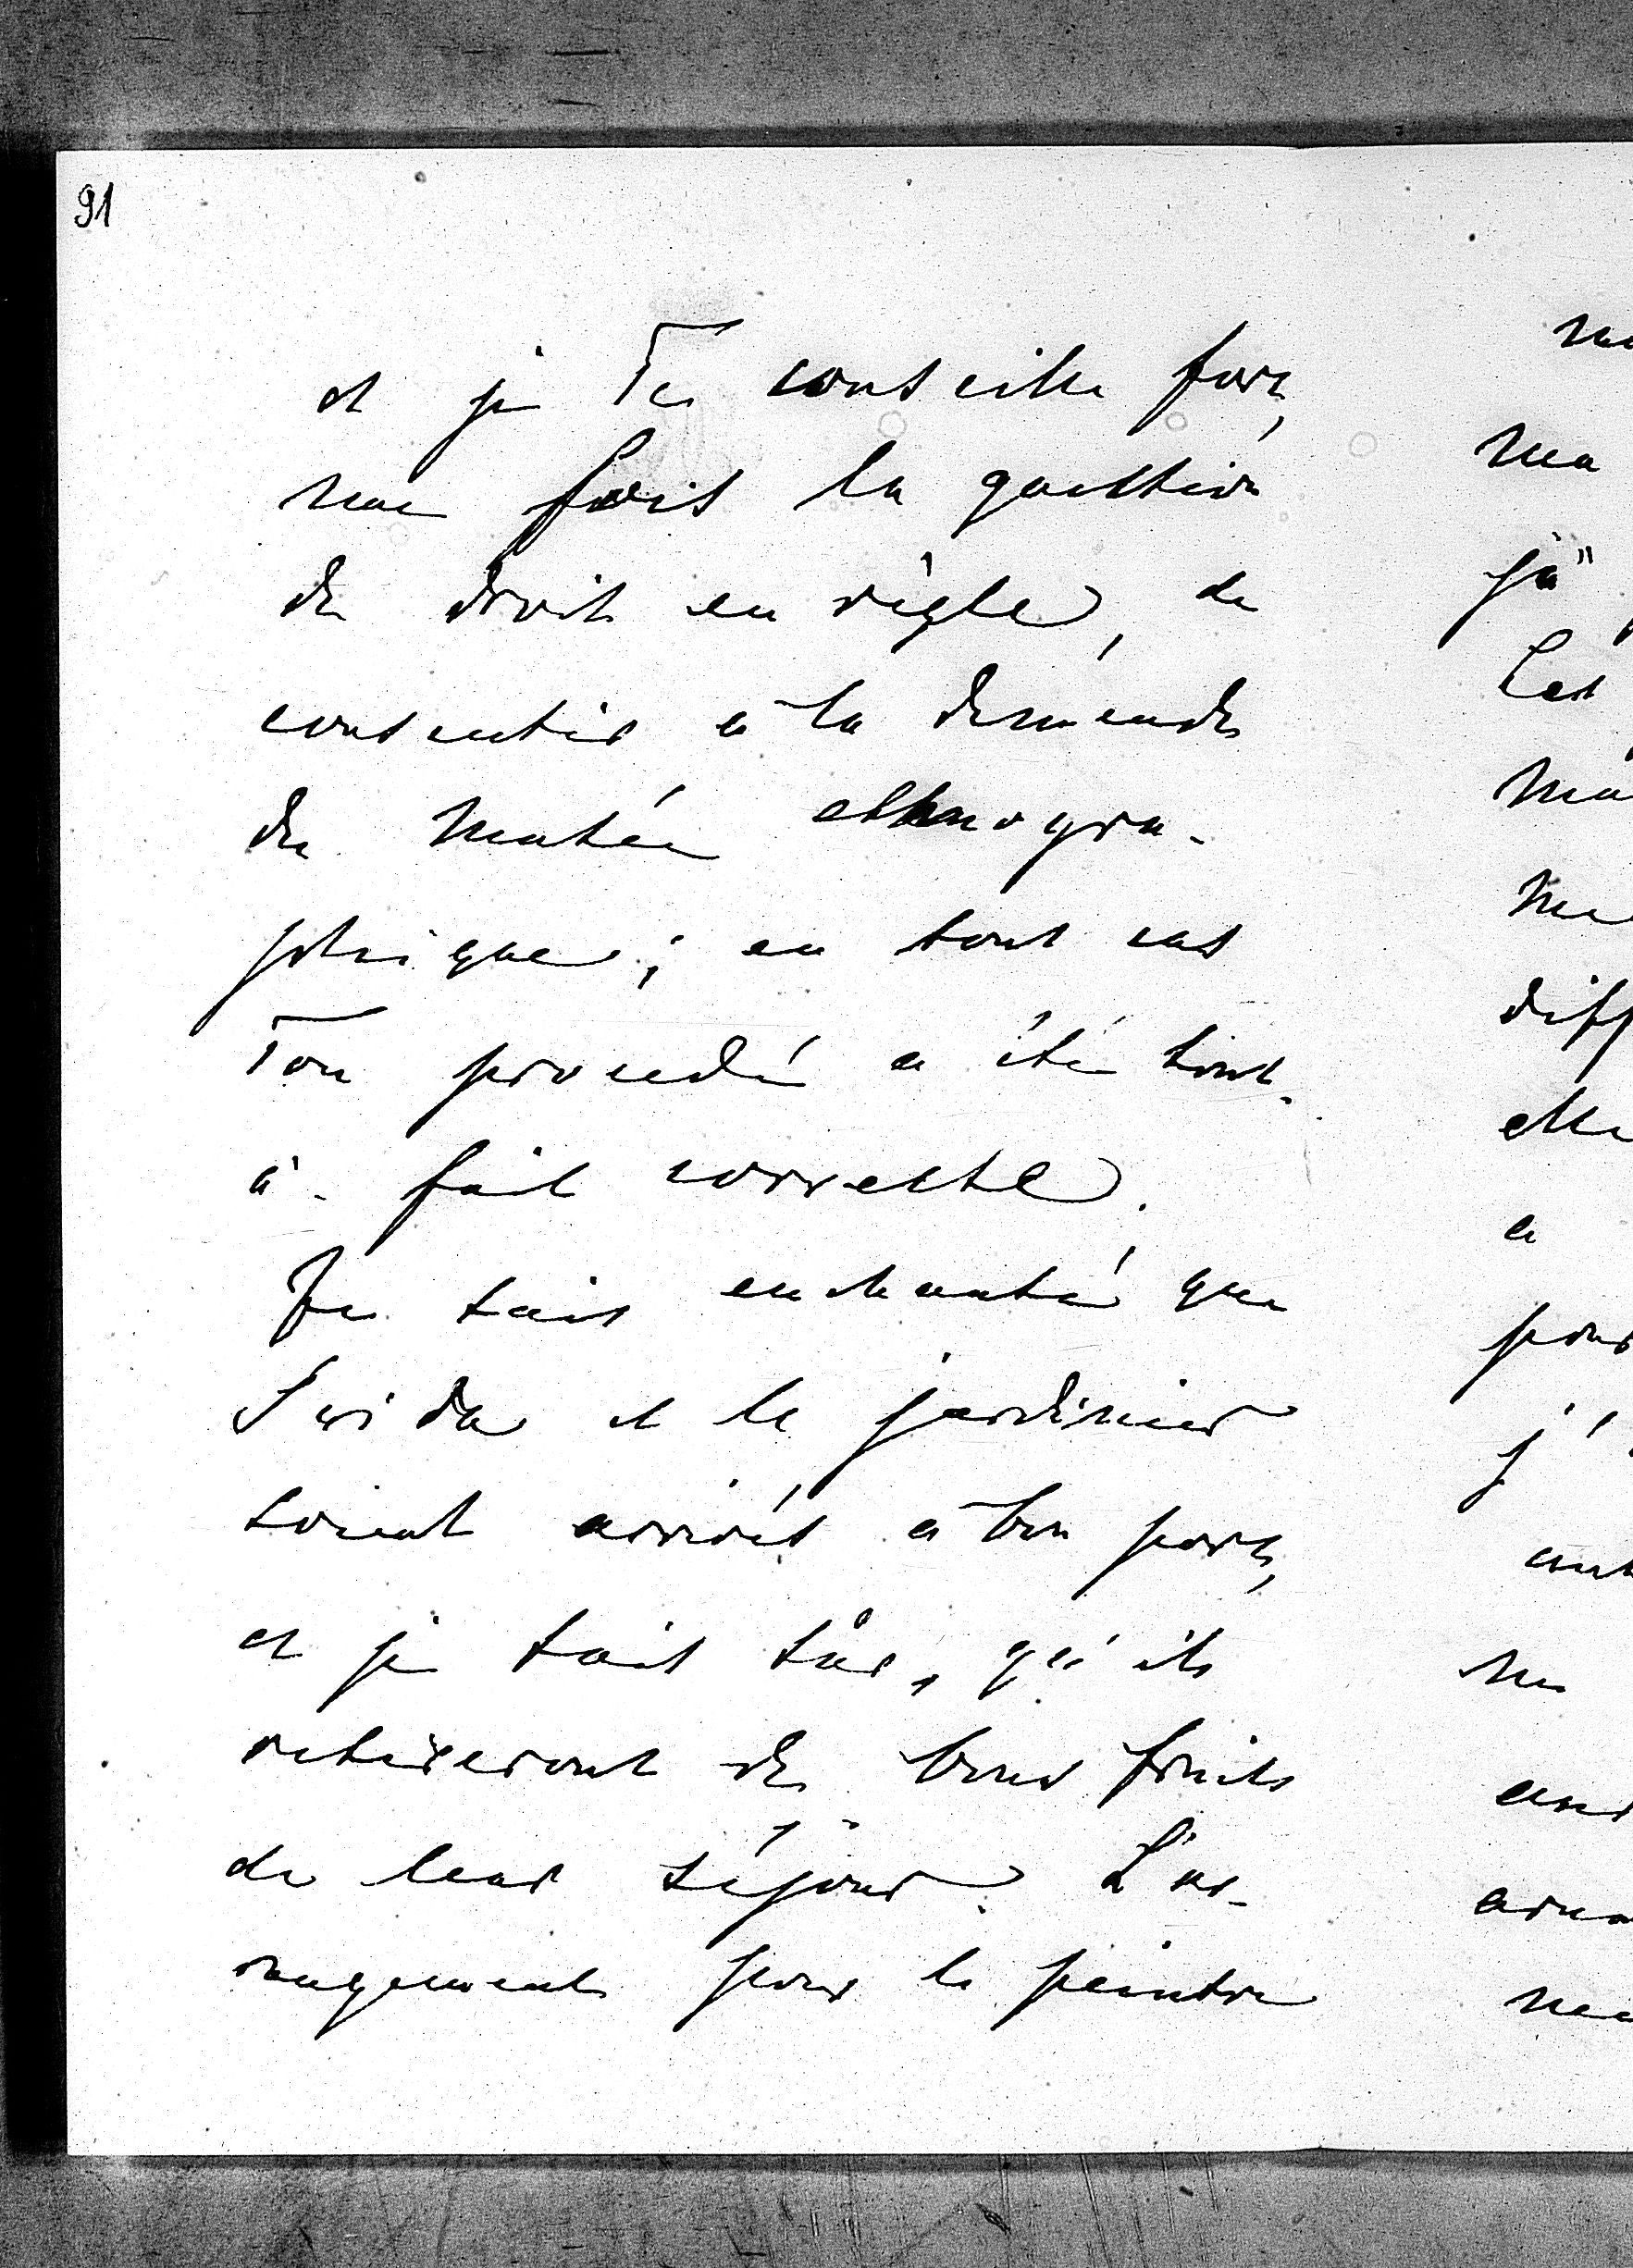 91
et je Te conseille fort,
une fois la question
de droit en règle, de
consentir à la demande
du Musée ethnogra-
phique; en tout cas
Ton procédé a été tout-
à-fait correcte.
Je suis enchanté que
Swida et le jardinier
soient arrivés à bon port,
et je suis sûr, qu'ils
retireront de bons fruits
de leur séjour. L'ar-
rangement pour le peintre